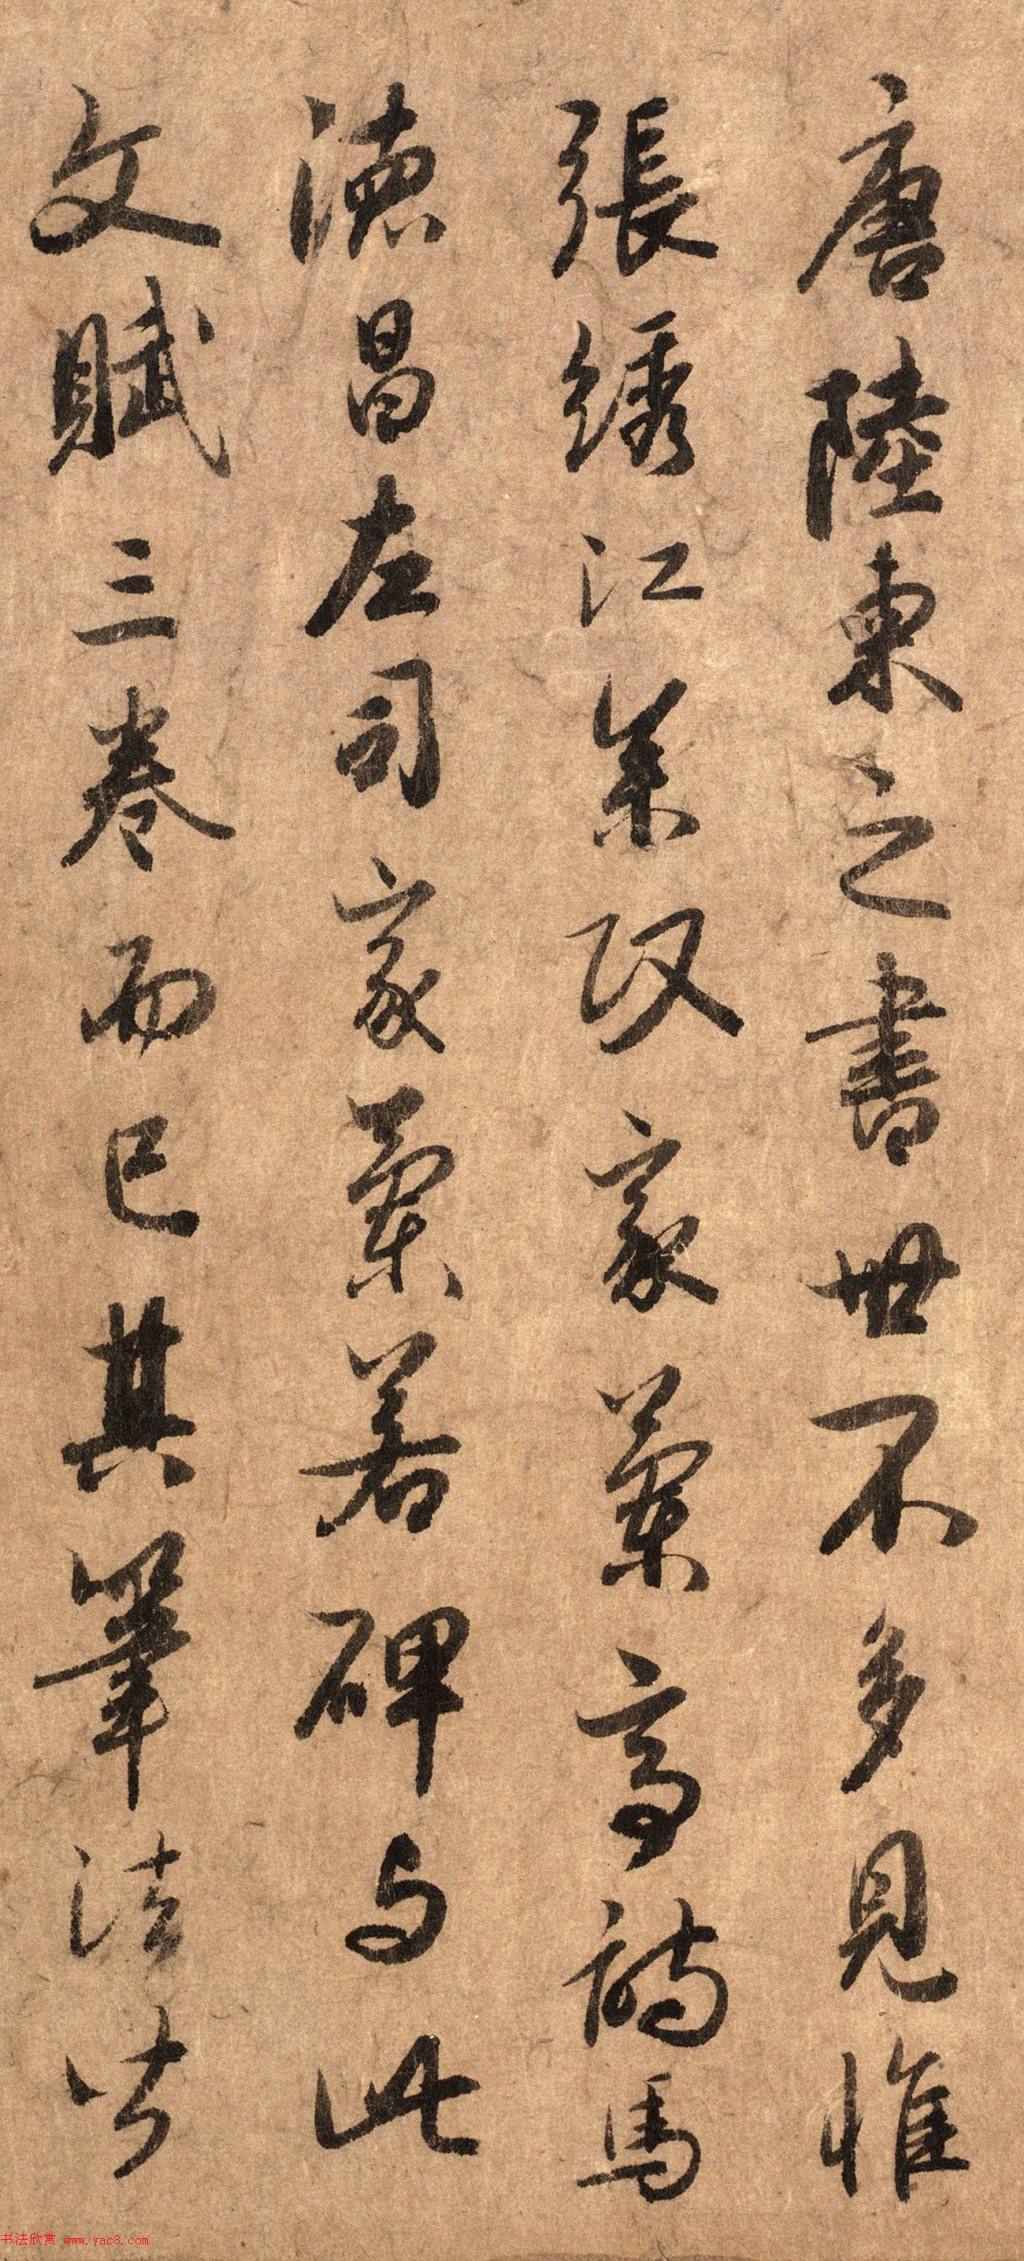 唐陸柬之書世不多見惟
張綉江參政家蘭亭詩馬
德昌左司家蘭若碑与此
文賦三卷而已其筆法皆
书法欣赏 www.yac8.com